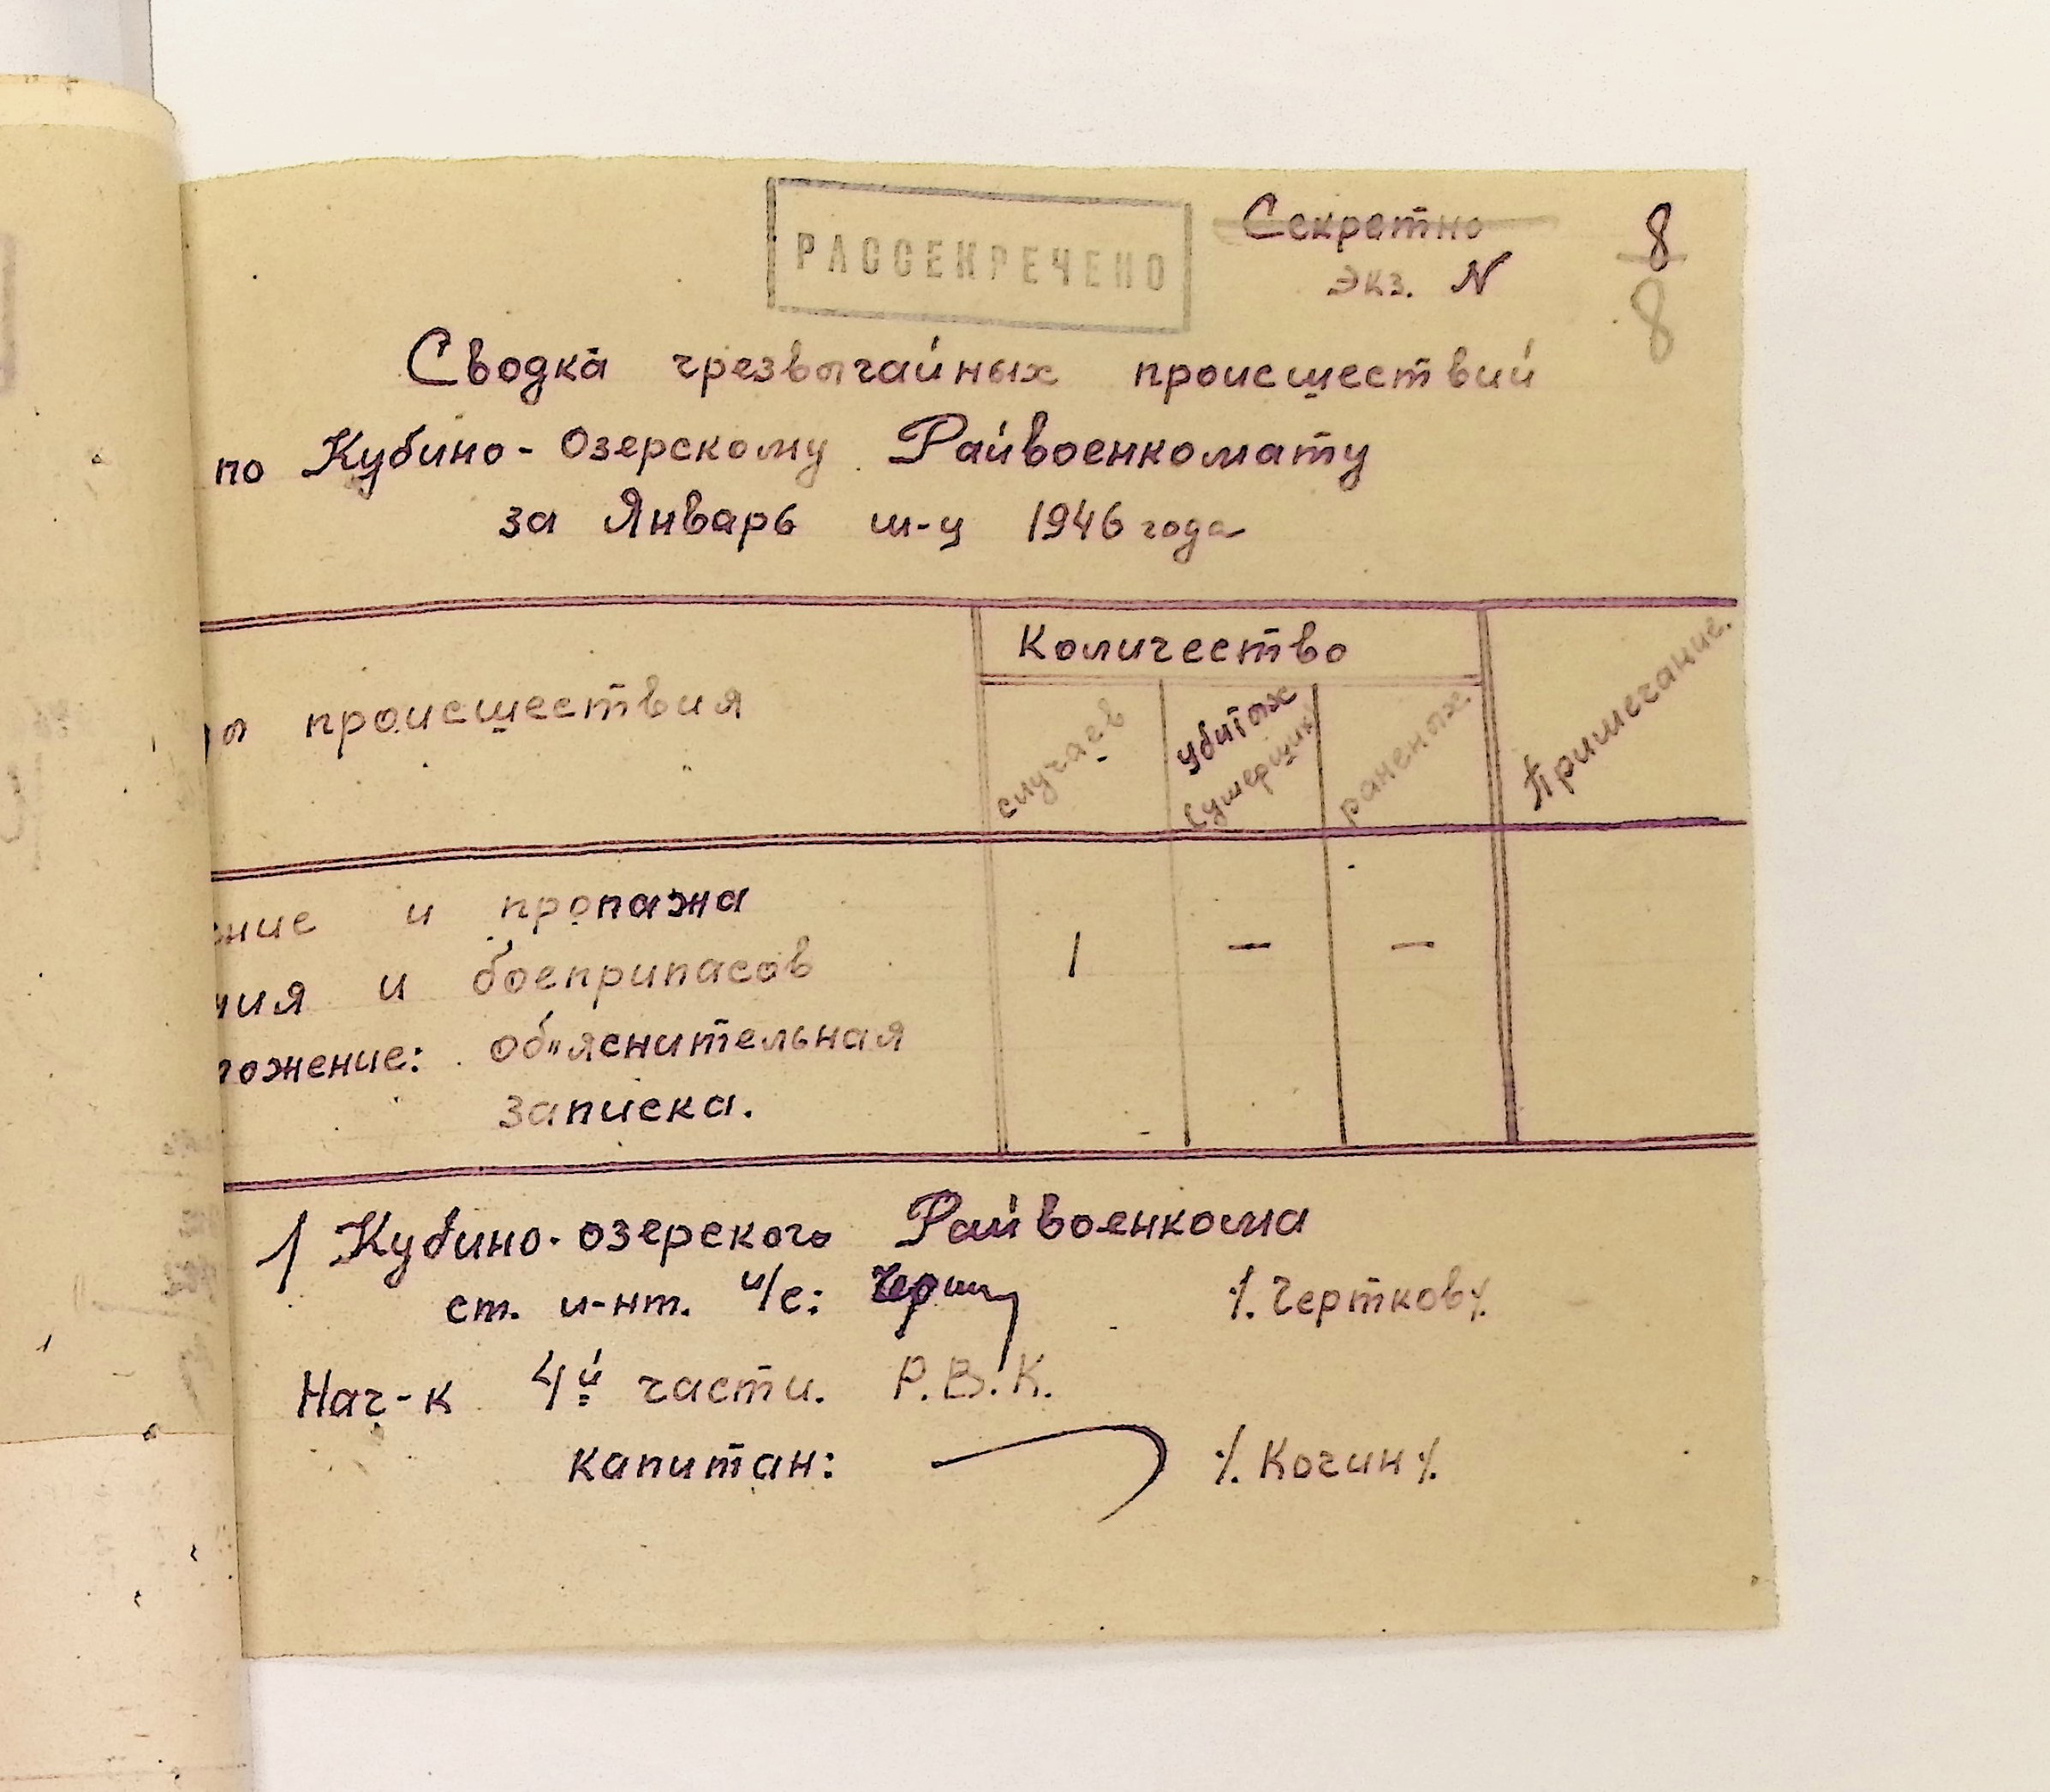 РАССЕКРЕЧЕНО
Секретно
экз. N
8
8
Сводка чрезвычайных происшествий
по Кубино-Озерскому Райвоенкомату
за Январь м-ц 1946 года
происшествия
Количество
случаев
убитых
(умерших)
раненых
Примечание.
ение и пропажа
ния и боеприпасов
1 — —
ложение: об"яснительная
записка.
Кубино-озерского Райвоенкома
ст. и-нт. и/с: /.Чертков/.
Нач-к 4й части. Р.В.К.
капитан: /.Кочин/.